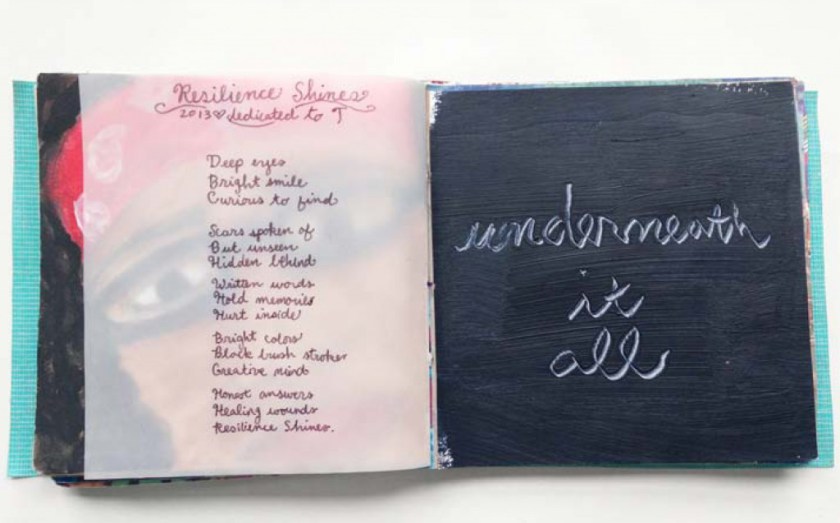 Resilience Shines
2013♡dedicated to T
Deep eyes
Bright smile
Curious to find
Scars spoken of
But unseen
Hidden behind
Written words
Hold memories
Hurt inside
Bright colors
Black brush strokes
Creative mind
Honest answers
Healing wounds
Resilience Shines.
underneath
it
all